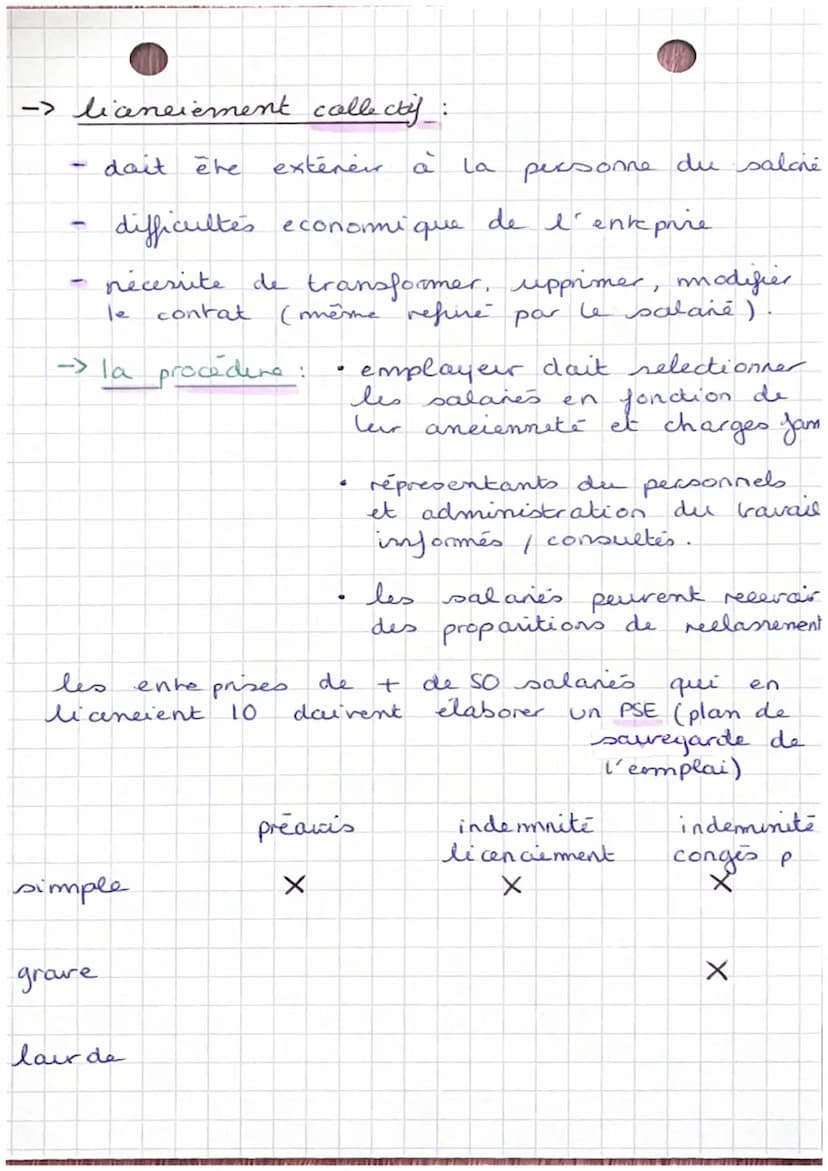 -> licenciement collectif :
- doit être extérieur à la personne du salarié
- difficultés economique de l'entreprise
- nécessite de transformer, supprimer, modifier
le contrat (même refusé par le salarié).
-> la procédure : • employeur doit selectionner
les salariés en fonction de
leur ancienneté et charges fam
• répresentants du personnels
et administration du travail
informés / consultés.
• les salariés peuvent recevoir
des propositions de reclassement
les entreprises de + de 50 salariés qui en
licencient 10 doivent élaborer un PSE (plan de
sauvegarde de
l'emploi)
préavis indemnité indemnité
licenciement congés p
simple X X X
grave X
lourde